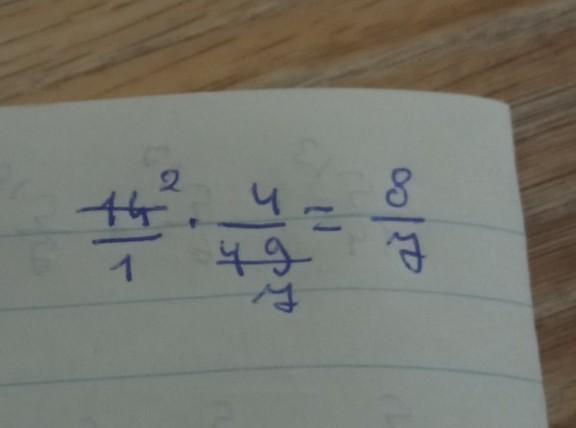 14² / 1 · 4 / 49 7 = 8 / 7